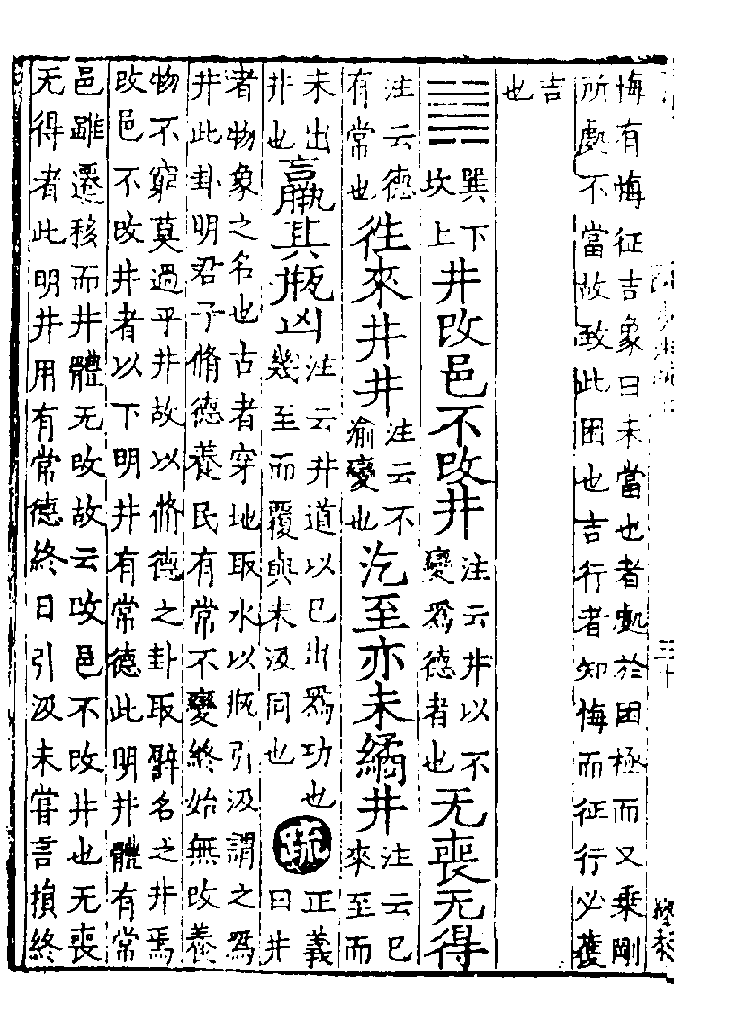 三十
悔有悔征吉象曰未當也者處於困極而又乘剛
所處不當故致此困也吉行者知悔而征行必獲
吉
也
巽下
坎上
井改邑不改井
注云井以不
變爲德者也
无喪无得
注云德
有常也
徃來井井
注云不
渝變也
汔至亦未繘井
注云已
來至而
未出
井也
羸其瓶凶
注云井道以已出爲功也
幾至而覆與未汲同也
疏
正義
曰井
者物象之名也古者穿地取水以瓶引汲謂之爲
井此卦明君子脩德養民有常不變終始無改養
物不窮莫過乎井故以脩德之卦取譬名之井焉
改邑不改井者以下明井有常德此明井體有常
邑雖遷移而井體无改故云改邑不改井也无喪
无得者此明井用有常德終日引汲未嘗言損終